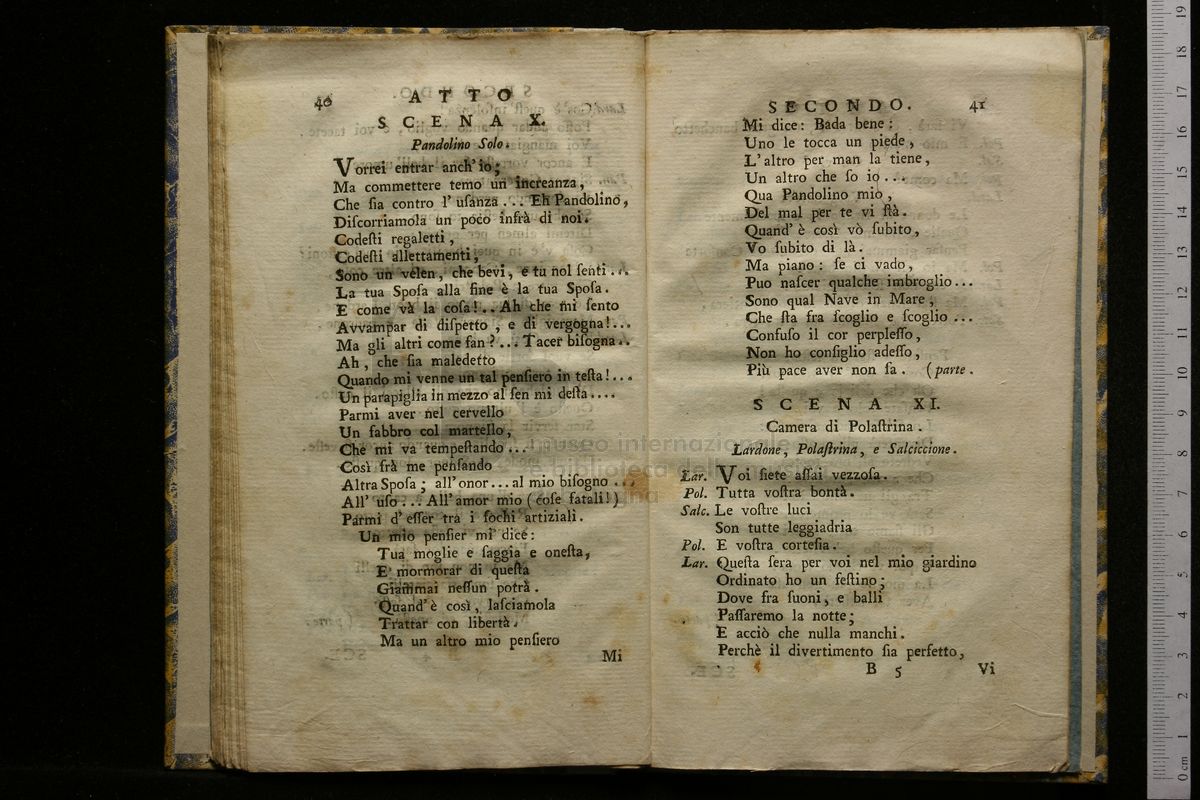 40
ATTO
SCENA X.
Pandolino Solo.
Vorrei entrar anch' io;
Ma commettere temo un increanza,
Che ſia contro l' uſanza ... Eh Pandolino,
Diſcorriamola un poco infrà di noi.
Codeſti regaletti,
Codeſti allettamenti,
Sono un velen, che bevi, e tu nol ſenti ...
La tua Spoſa alla fine è la tua Spoſa.
E come và la coſa!.. Ah che mi ſento
Avvampar di diſpetto, e di vergogna!...
Ma gli altri come fan?... Tacer biſogna..
Ah, che ſia maledetto
Quando mi venne un tal penſiero in teſta!...
Un parapiglia in mezzo al ſen mi deſta....
Parmi aver nel cervello
Un fabbro col martello,
Che mi va tempeſtando ...
Così frà me penſando
Altra Spoſa; all'onor... al mio biſogno ...
All' uſo... All'amor mio (coſe fatali!)
Parmi d' eſſer tra i fochi artiziali.
Un mio penſier mi dice:
Tua moglie e ſaggia e oneſta,
E' mormorar di queſta
Giammai neſſun potrà.
Quand'è così, laſciamola
Trattar con libertà.
Ma un altro mio penſiero
Mi
SECONDO.
41
Mi dice: Bada bene:
Uno le tocca un piede,
L'altro per man la tiene,
Un altro che ſo io...
Qua Pandolino mio,
Del mal per te vi ſtà.
Quand'è così vò ſubito,
Vo ſubito di là.
Ma piano: ſe ci vado,
Puo naſcer qualche imbroglio...
Sono qual Nave in Mare,
Che ſta fra ſcoglio e ſcoglio ...
Confuſo il cor perpleſſo,
Non ho conſiglio adeſſo,
Più pace aver non ſa. (parte.
SCENA XI.
Camera di Polaſtrina.
Lardone, Polaſtrina, e Salciccione.
Lar. Voi ſiete aſſai vezzoſa.
Pol. Tutta voſtra bontà.
Salc. Le voſtre luci
Son tutte leggiadria
Pol. E voſtra corteſia.
Lar. Queſta ſera per voi nel mio giardino
Ordinato ho un feſtino;
Dove fra ſuoni, e balli
Paſſaremo la notte;
E acciò che nulla manchi.
Perchè il divertimento ſia perfetto,
B 5
Vi